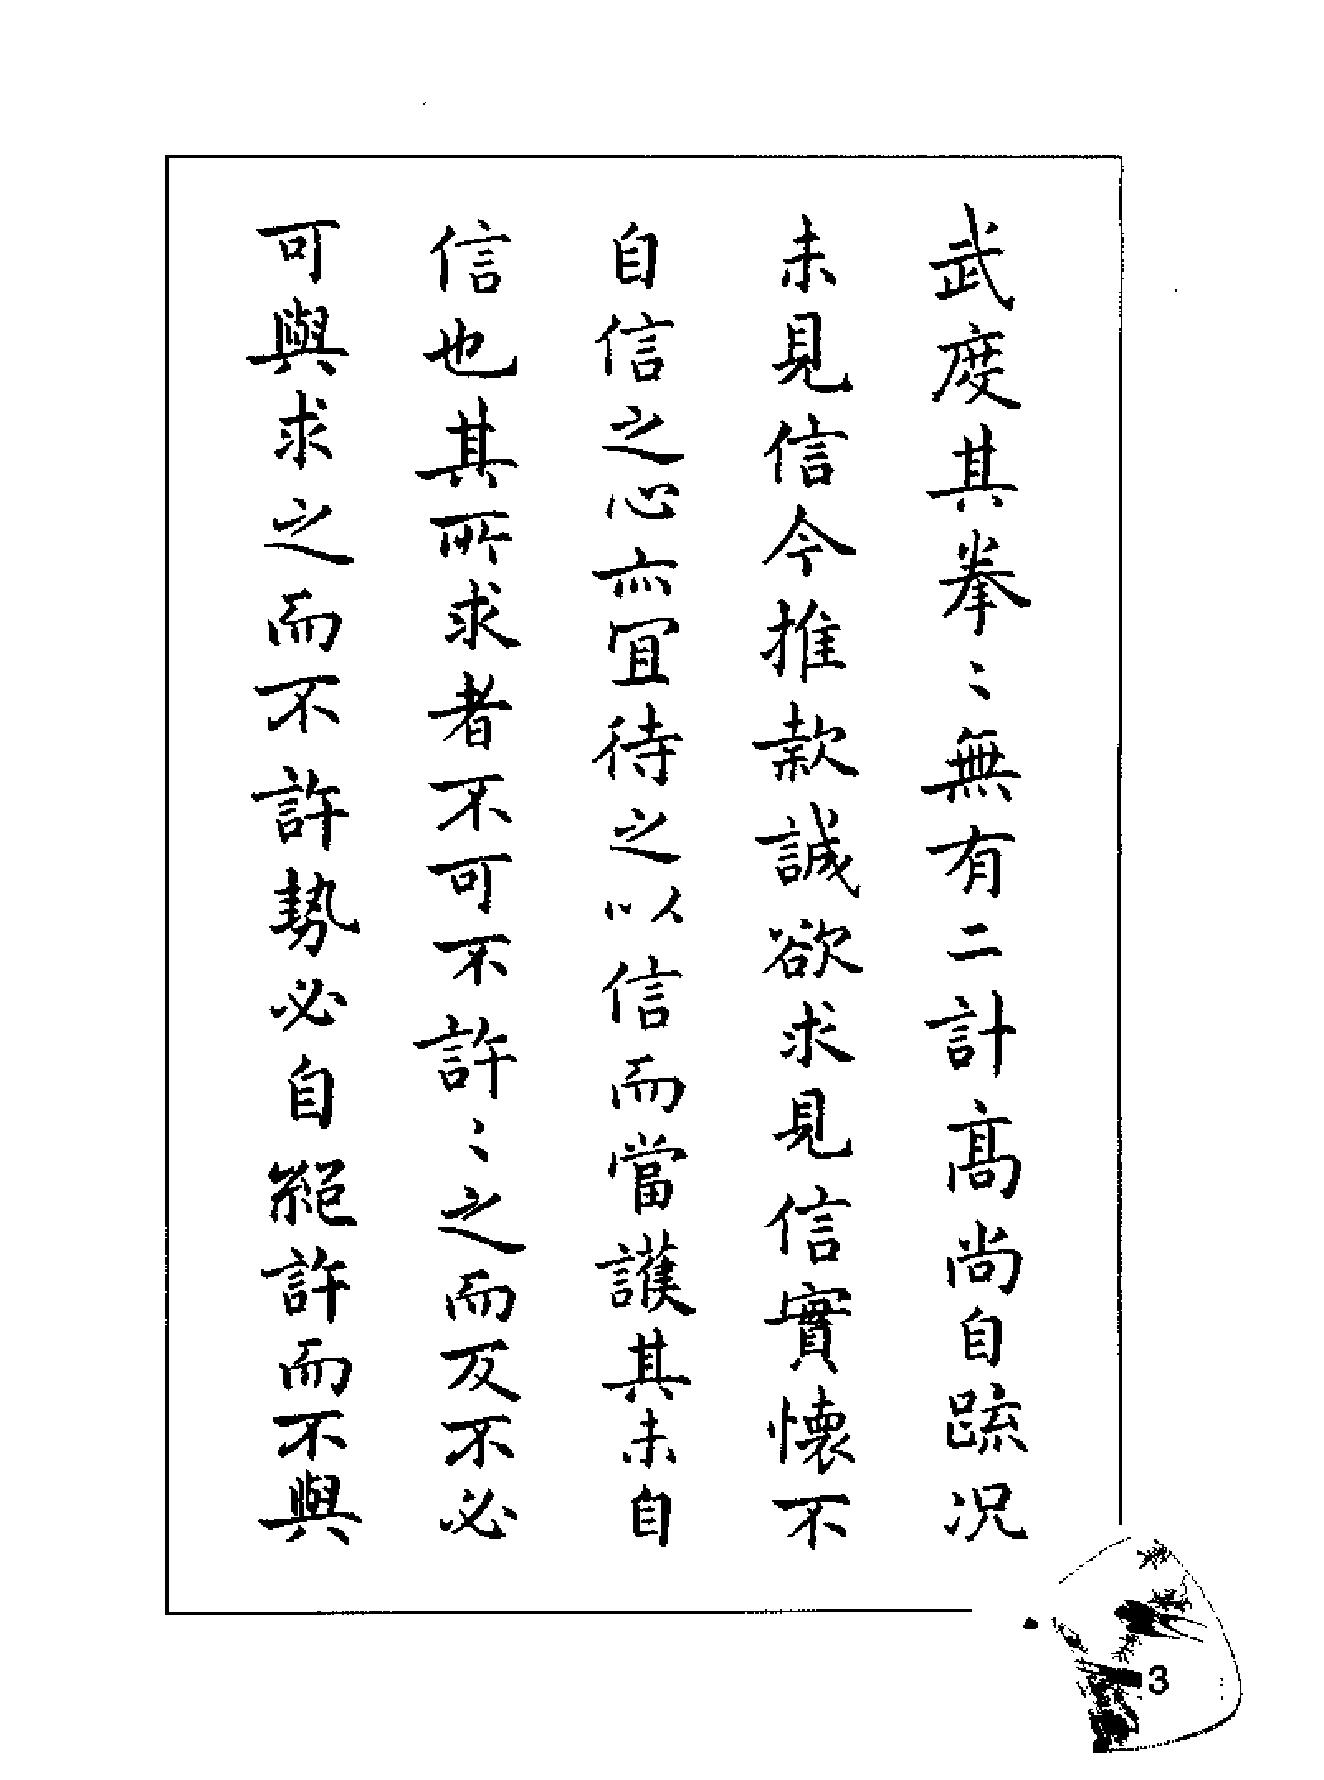 武度其拳〻無有二計高尚自疏況
未見信今推款誠欲求見信實懷不
自信之心亦宜待之以信而當護其未自
信也其所求者不可不許〻之而反不必
可與求之而不許勢必自絕許而不與
3